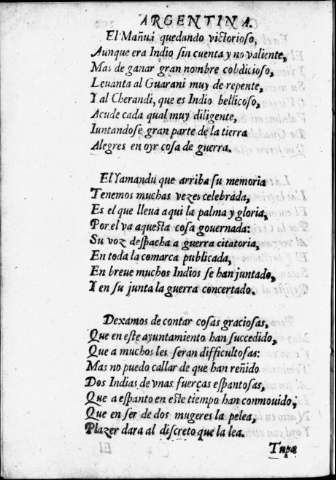 ARGENTINA.
El Mañuá quedando victorioso,
Aunque era Indio sin cuenta y no valiente,
Mas de ganar gran nombre cobdicioso,
Leuanta al Guarani muy de repente,
Y al Cherandi, que es Indio bellicoso,
Acude cada qual muy diligente,
Iuntandose gran parte de la tierra
Alegres en oyr cosa de guerra.
El Yamandu que arriba su memoria
Tenemos muchas vezes celebrada,
Es el que lleua aqui la palma y gloria,
Por el va aquesta cosa gouernada:
Su voz despacha a guerra citatoria,
En toda la comarca publicada,
En breue muchos Indios se han juntado,
Y en su junta la guerra concertado.
Dexamos de contar cosas graciosas,
Que en este ayuntamiento han succedido,
Que a muchos les seran difficultosas:
Mas no puedo callar de que han reñido
Dos Indias de vnas fuerças espantosas,
Que a espanto en este tiempo han conmouido;
Que en ser de dos mugeres la pelea,
Plazer dara al discreto que la lea.
Tupa